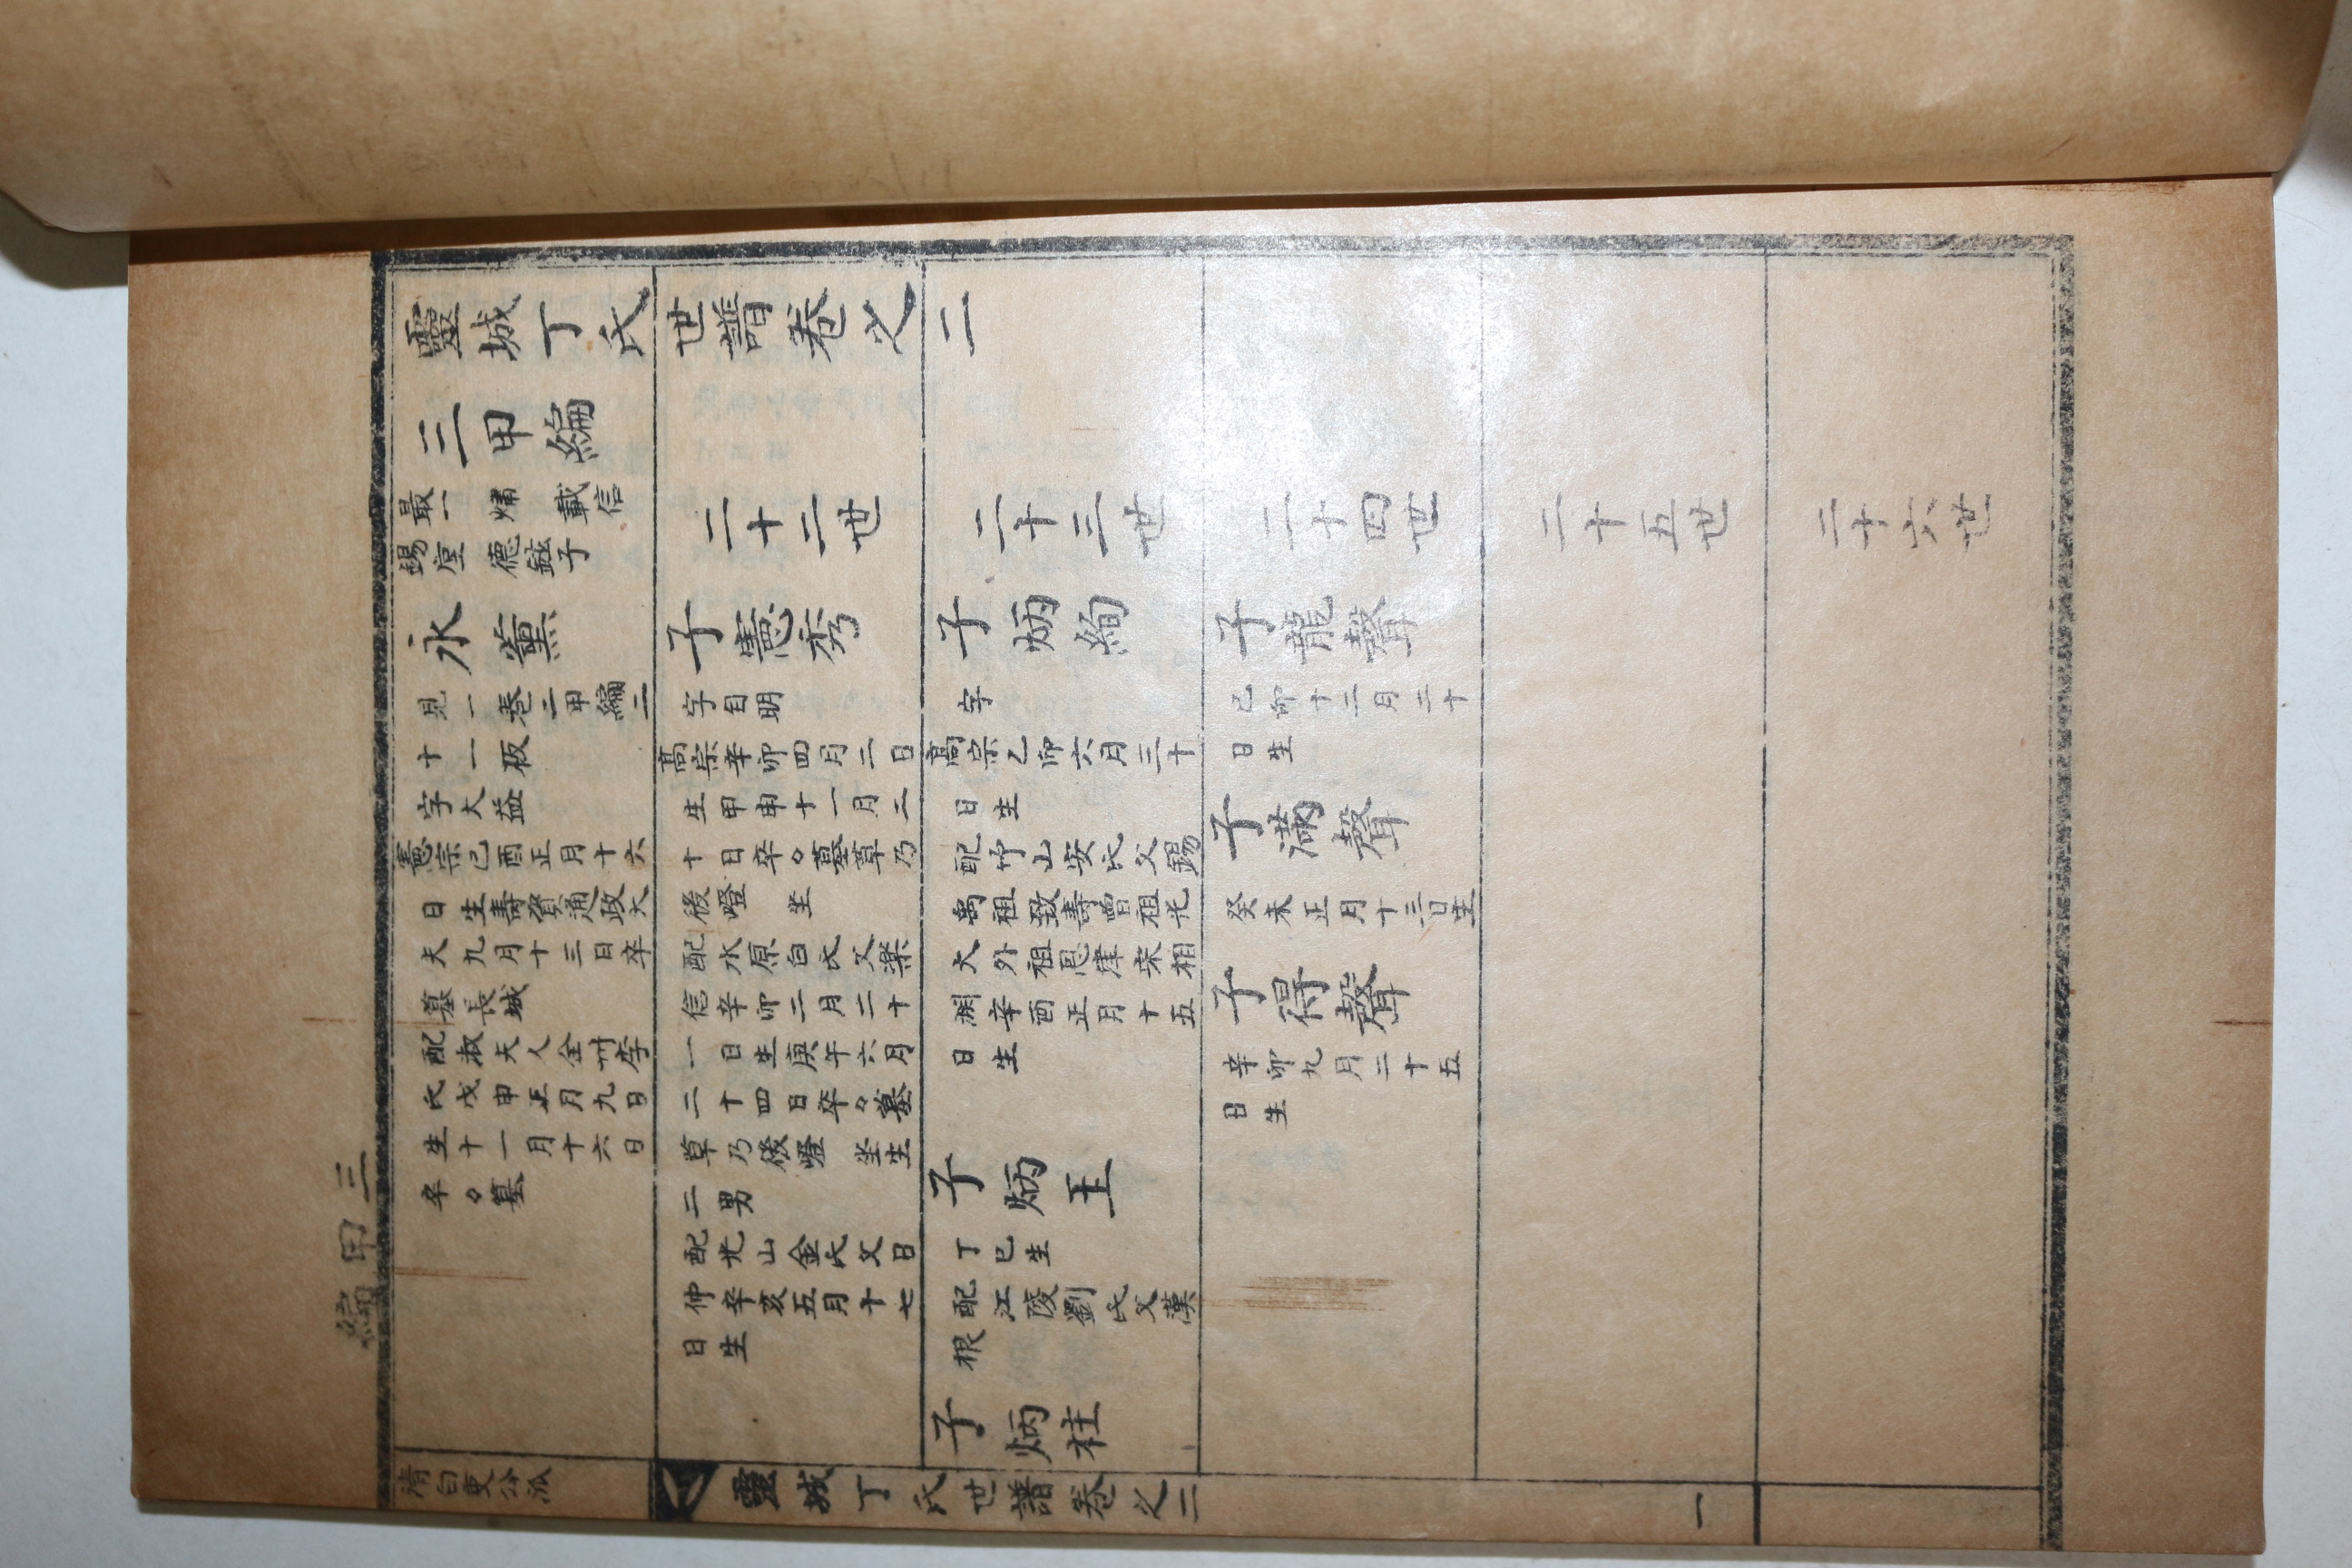 靈城丁氏世譜卷之二
三甲編
最一 爀 載信
錫奎 德鉉子
永薰
見一卷二甲編二
十一板
字大益
憲宗己酉正月十六
日生壽資通政大
夫九月十三日卒
墓長城
配淑夫人金州李
氏戊申正月九日
生十一月十六日
卒々墓
二十二世
子憲秀
字自明
高宗辛卯四月二日
生甲申十一月二
十日卒々墓草乃
後嶝 坐
配水原白氏父樂
信辛卯二月二十
一日生庚午六月
二十四日卒々墓
草乃後嶝 坐生
二男
配光山金氏父日
仲辛亥五月十七
日生
二十三世
子炳絢
字
高宗乙卯六月三十
日生
配竹山安氏父錫
禹祖致壽曾祖光
大外祖恩津宋相
渕辛酉正月十五
日生
子炳王
丁巳生
配江陵劉氏父漢
根
子炳柱
二十四世
子龍聲
己卯十二月二十
日生
子滿聲
癸未正月十三日生
子得聲
辛卯九月二十五
日生
二十五世
二十六世
三甲編
清白吏公派
靈城丁氏世譜卷之二
一